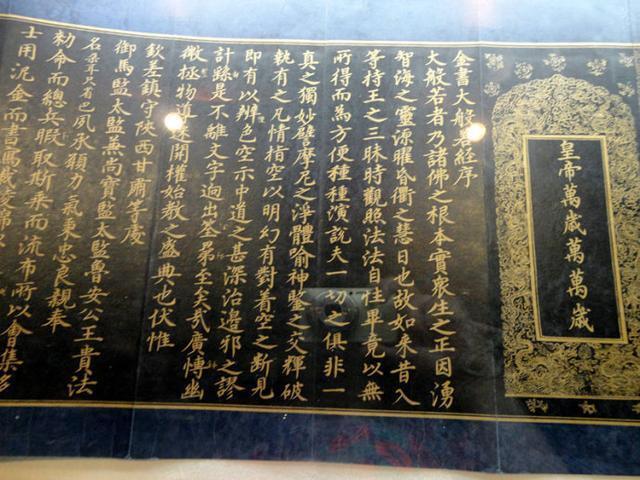 皇帝萬歲萬萬歲
金書大般若經序
大般若者乃諸佛之根本實衆生之正因湧
智海之靈源曜昏衢之慧日也故如来昔入
等持王之三昧時觀照法法自性畢竟以無
所得而為方便種種演說夫一切之俱非一
真之獨妙譬摩尼之淨體喻神堅之交輝破
執有之凡情指空以明幻有對着空之断見
即有以辨色空示中道之甚深治邉邪之謬
計歸是不離文字迥出荃第至矣哉廣博幽
微極物道遂開權始教之盛典也伏惟
欽差鎮守陝西甘肅等處
御馬監太監無尚寳監太監魯安公王貴法
名 夙承願力氣秉忠良親奉
勑命而總兵暇取斯乘而流布所以會集多
士用泥金而書寫